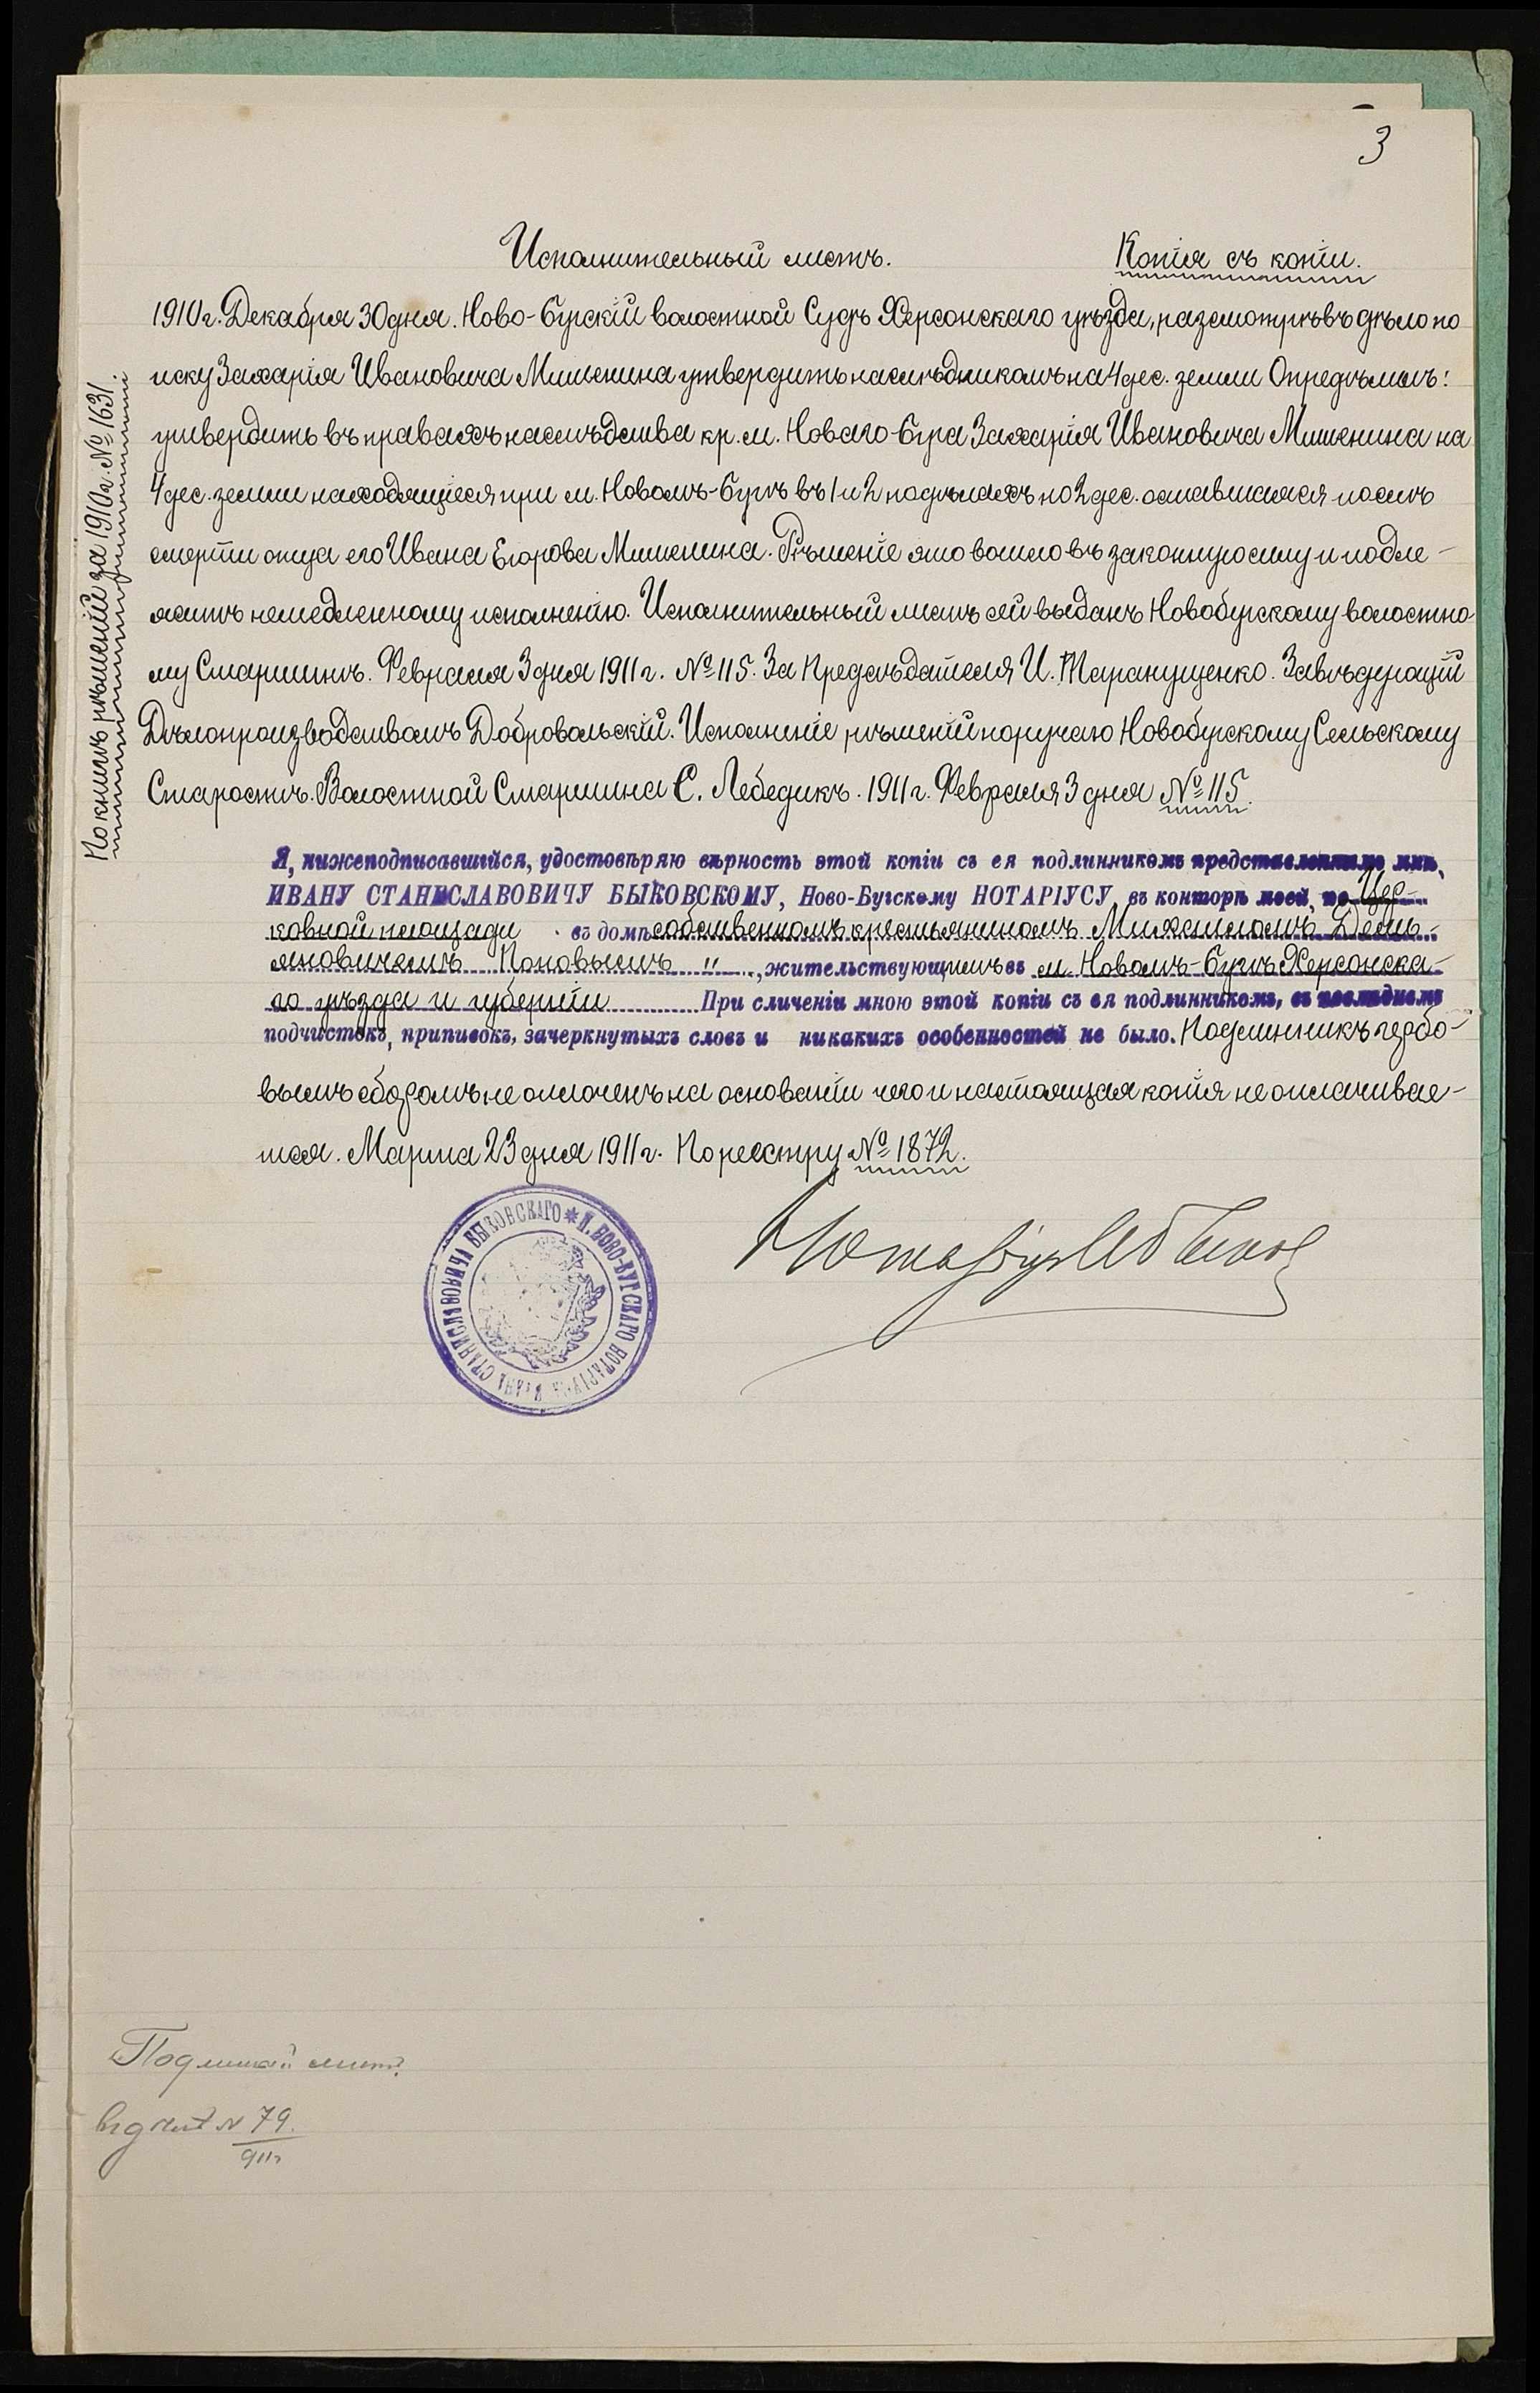 3
Исполнительный листъ. Копія съ копіи.
1910 г. Декабря 30 дня. Ново-Бугскій волостной Судъ Херсонскаго уѣзда, разсмотрѣвъ дѣло по
иску Захарія Ивановича Мишенина утвердить наслѣдникомъ на 4 дес. земли Опредѣлилъ:
утвердить въ правахъ наслѣдства кр. м. Новаго-Буга Захарія Ивановича Мишенина на
4 дес. земли находящіеся при м. Новомъ-Бугѣ въ 1 и 2 надѣлахъ по 2 дес. оставшаяся послѣ
смерти отца его Ивана Егорова Мишенина. Рѣшеніе это вошло въ законную силу и подле-
житъ немедленному исполненію. Исполнительный листъ сей выданъ Новобугскому волостно-
му Старшинѣ. Февраля 3 дня 1911 г. № 115. За Предсѣдателя И. Таранущенко. Завѣдующій
Дѣлопроизводствомъ Добровольскій. Исполненіе рѣшеній поручаю Новобугскому Сельскому
Старостѣ. Волостной Старшина С. Лебедикъ. 1911 г. Февраля 3 дня № 115.
По книгѣ рѣшеній за 1910 г. № 1631.
Я, нижеподписавшійся, удостовѣряю вѣрность этой копіи съ ея подлинникомъ представленнымъ мнѣ,
ИВАНУ СТАНИСЛАВОВИЧУ БЫКОВСКОМУ, Ново-Бугскому НОТАРІУСУ, въ конторѣ моей, по Цер-
ковной площади въ домѣ собственномъ крестьяниномъ Михаиломъ Демь-
яновичемъ Поповымъ " , жительствующимъ въ м. Новомъ-Бугѣ Херсонска-
го уѣзда и губерніи При сличеніи мною этой копіи съ ея подлинникомъ, въ послѣднемъ
подчистокъ, приписокъ, зачеркнутыхъ словъ и никакихъ особенностей не было. Подлинникъ гербо-
вымъ сборомъ не оплоченъ на основаніи чего и настоящая копія не оплачивае-
тся. Марта 23 дня 1911 г. По реестру № 1872.
* П. НОВО-БУГСКАГО НОТАРІУСА ИВАНА СТАНИСЛАВОВИЧА БЫКОВСКАГО
Нотаріусъ
листъ
№ 79.
911 г